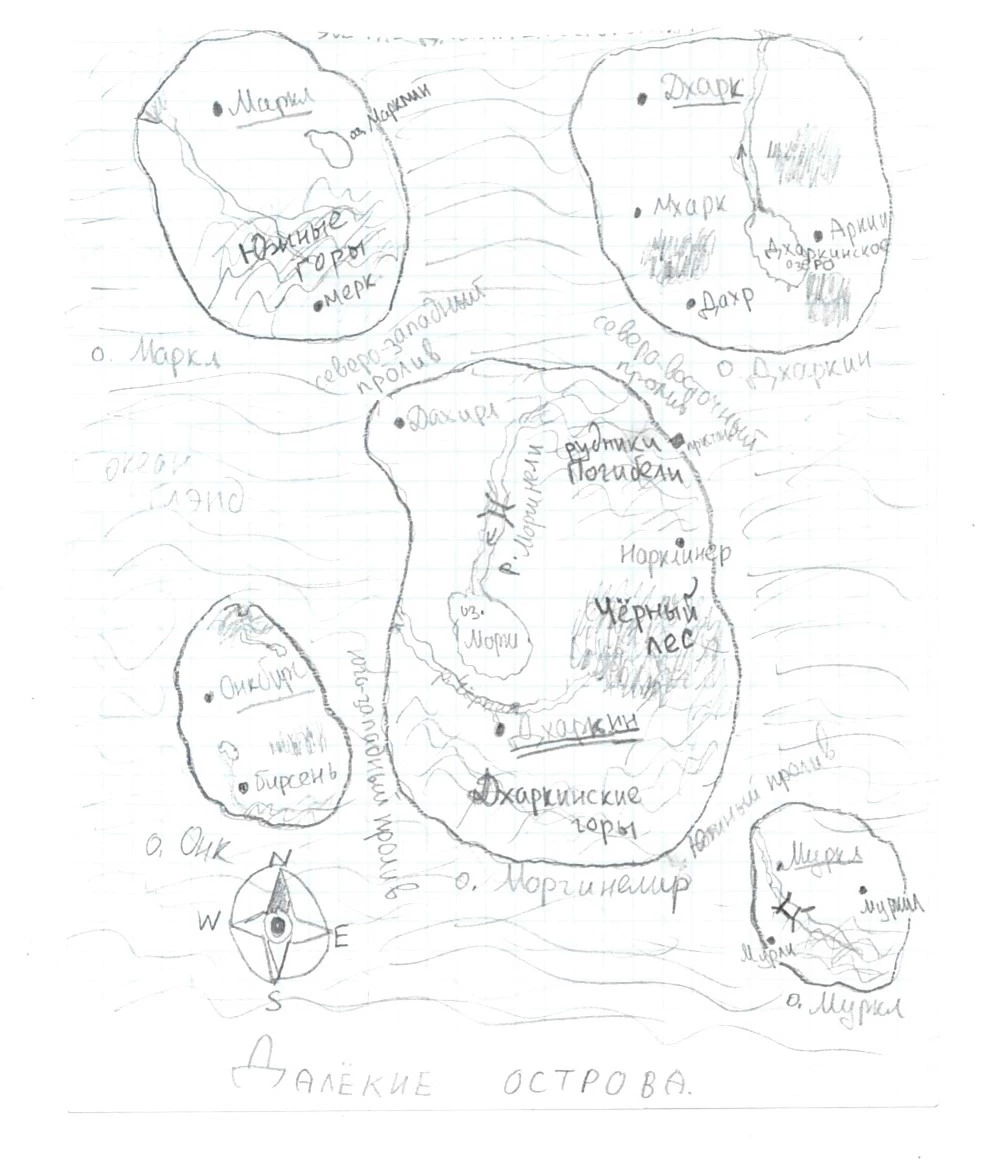 Маркл
оз. Маркли
Южные
горы
Мерк
о. Маркл
Дхарк
Мхарк
Аркин
Дхаркинское
озеро
Дахр
о. Дхаркин
северо-западный
пролив
северо-восточный
пролив
Дахирл
рудники
Погибели
пристань
р. Моргинели
океан
Лэнд
Нархлинер
Чёрный
лес
оз.
Морги
Дхаркин
Дхаркинские
горы
о. Моргинемир
юго-западный пролив
Южный пролив
Онкбург
Бирсень
о. Онк
N
W
E
S
Муркл
Муркил
Мурли
о. Муркл
Далёкие острова.